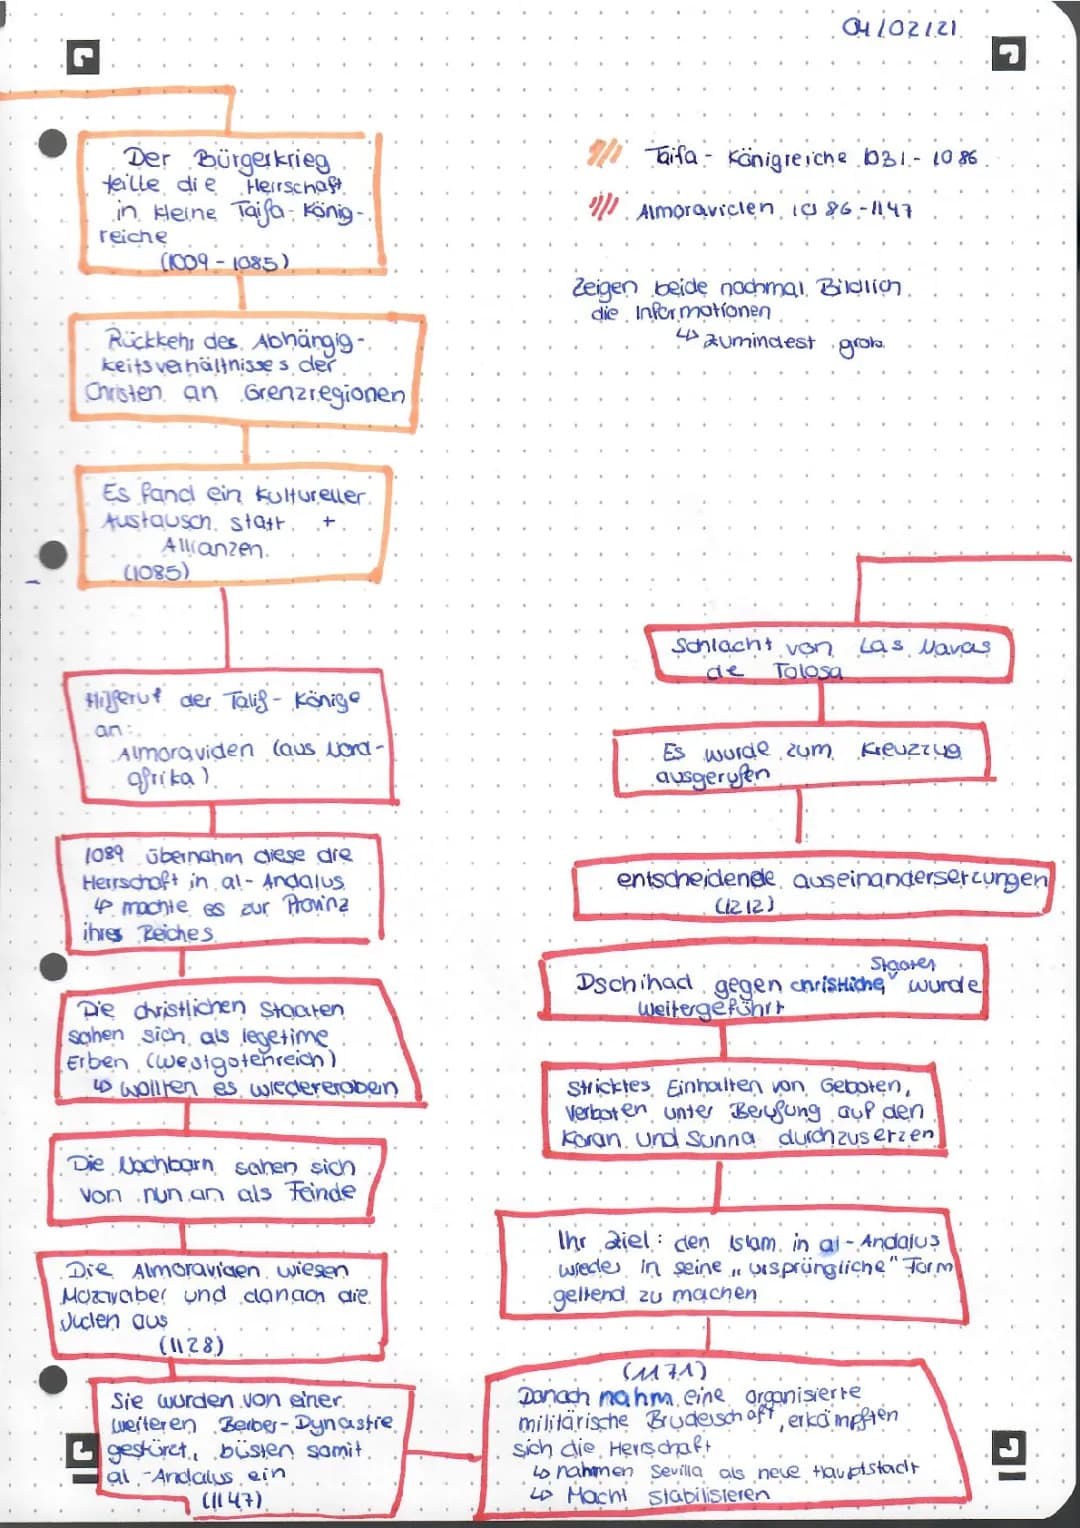 04/02/21
Der Bürgerkrieg
teille die Herrschaft
in kleine Taifa-König-
reiche
(1009-1085)
Rückkehr des Abhängig-
keitsverhältnisses der
Christen an Grenzregionen
Es fand ein kultureller
Austausch statt +
Allianzen
(1085)
Hilferuf der Taiif-Könige
an:
Almoraviden (aus Nord-
afrika)
1089 übernahm diese die
Herrschaft in al-Andalus
↳ machte es zur Provinz
ihres Reiches
Die christlichen Staaten
sahen sich als legetime
Erben (Westgotenreich)
↳ wollten es wiedereroben
Die Nachbarn sahen sich
von nun an als Feinde
Die Almoraviden wiesen
Mozaraber und danach die
Juden aus
(1128)
Sie wurden von einer
weiteren Berber-Dynastie
gestürzt, büsten somit
al-Andalus ein
(1147)
Taifa-Königreiche 1031-1086
Almoraviden 1086-1147
Zeigen beide nochmal Bildlich
die Informationen
↳ zumindest grob
Schlacht von Las Navas
de Tolosa
Es wurde zum Kreuzzug
ausgerufen
entscheidende auseinandersetzungen
(1212)
Staaten
Dschihad gegen christliche wurde
weitergeführt
Stricktes Einhalten von Geboten,
Verboten unter Berufung auf den
Koran und Sunna durchzusetzen
Ihr Ziel: den Islam in al-Andalus
wieder in seine „ursprüngliche" Form
geltend zu machen
(1171)
Danach nahm eine organisierte
militärische Bruderschaft, erkämpften
sich die Herrschaft
↳ nahmen Sevilla als neue Hauptstadt
↳ Macht stabilisieren